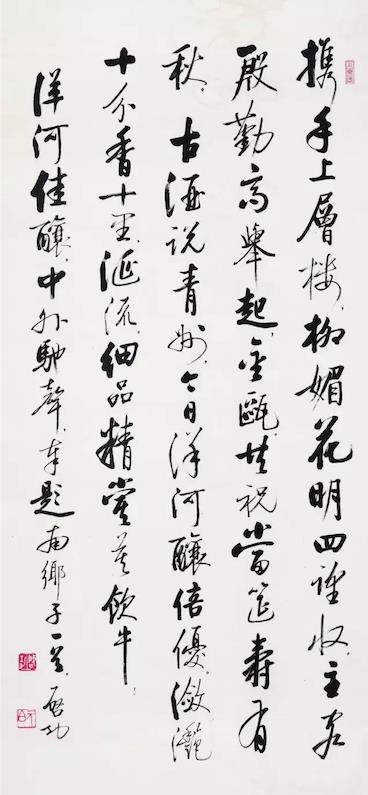 携手上層樓柳媚花明四望收主客
殷勤高舉起金甌共祝當筵壽有
秋古酒説青州今日洋河釀倍優瀲灔
十分香十里滙流細品精嘗莫飲牛
洋河佳釀中外馳聲奉題南鄉子一首啟功